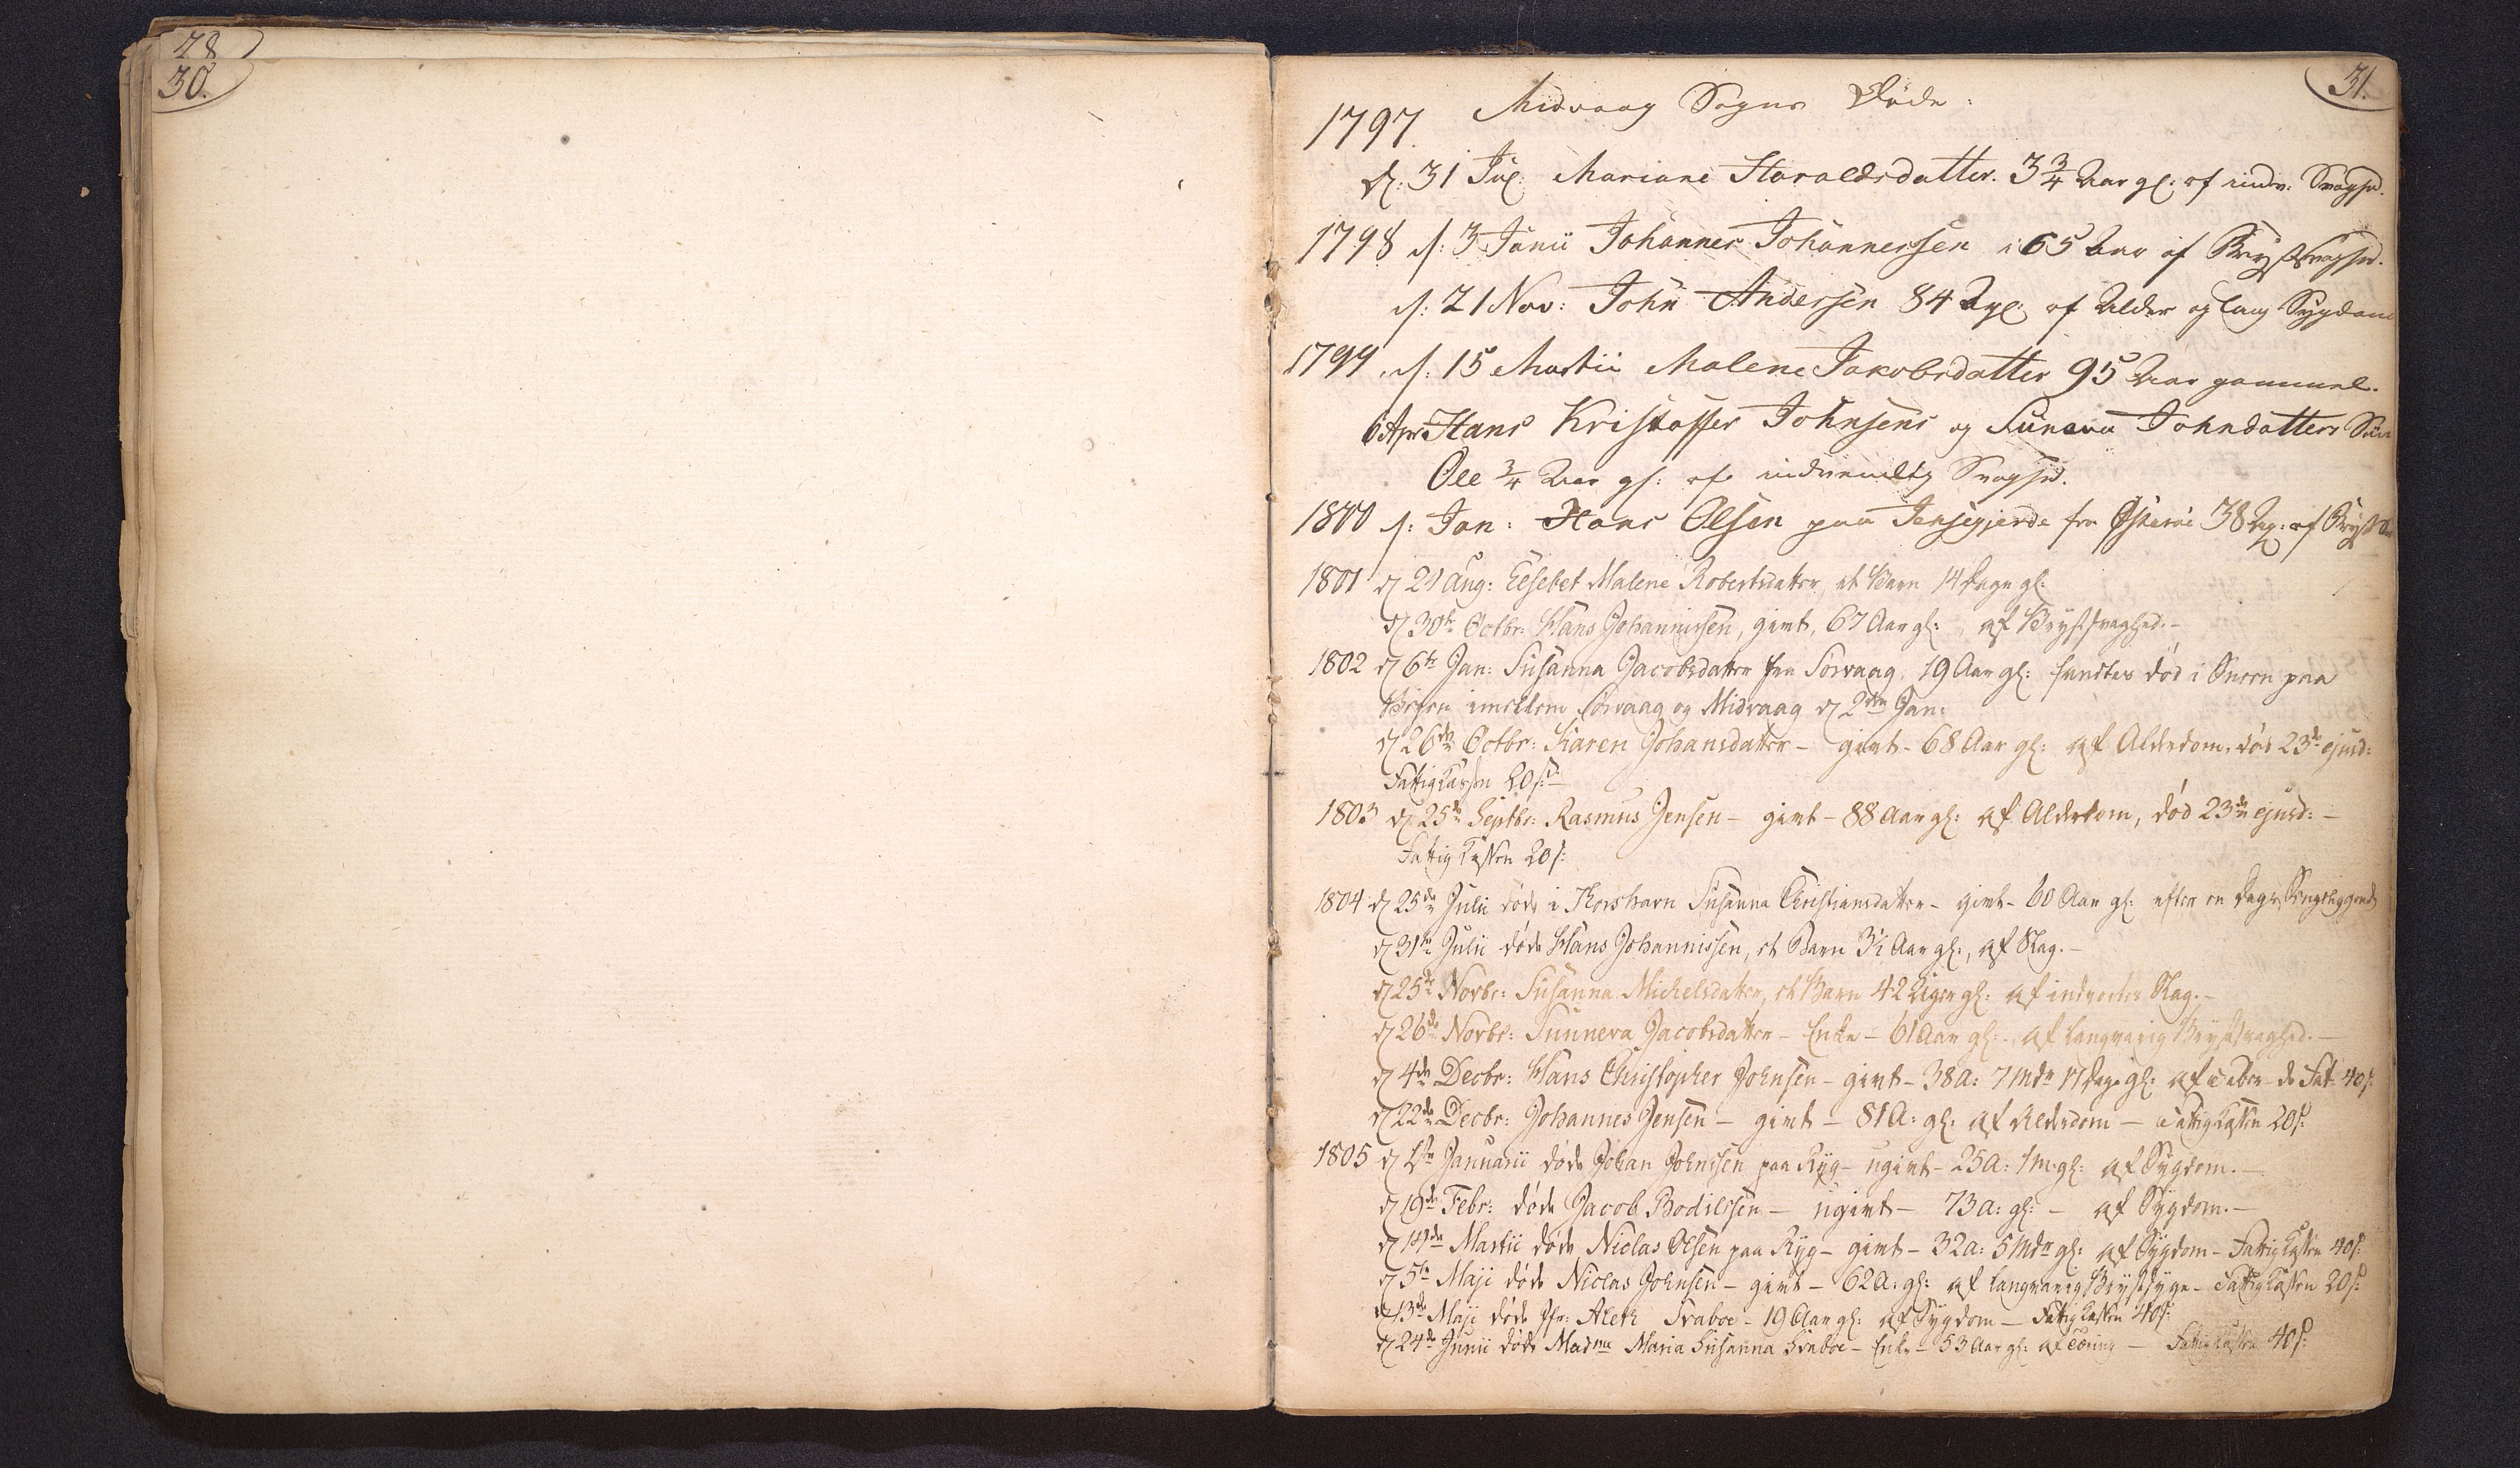 28
30.
31.
Midvaag Sogns Døde:
1797.
d: 31 Jul: Mariane Haraldsdatter. 3 3/4 Aar gl: af indv: Svaghd.
1798 d: 3 Junii Johannes Johannessen i 65 Aar af Brystsvaghed.
d: 21 Nov: John Andersen 84 A gl: af Alder og lang Sygdom
1799. d: 15 Martii Malene Jakobsdatter 95 Aar gammel.
6 Apr: Hans Kristoffer Johnsens og Suneva Johndatters Søn
Ole 3/4 Aar gl: af indvendig Svaghd.
1800 d: Jan: Hans Olsen paa Jensegjerde fra Østerøe 38 A g: af Bryst
1801 d 21 Aug: Elsebet Malene Robertsdatter, et Barn 14 Dage gl:
d 30te Octbr: Hans Johannissen, givt, 67 Aar gl:, af Brystsvaghed.-
1802 d 6te Jan: Susanna Jacobsdatter fra Sørvaag, 19 Aar gl: fandtes død i Sneen paa
Veyen imellem Sørvaag og Midvaag d 2den Jan:
d 26de Octbr: Karen Johansdatter - givt - 68 Aar gl: af Alderdom, død 23de ejusd:
Fattig Cassen 20 s: -
1803 d 25de Septbr: Rasmus Jensen - givt - 88 Aar gl: af Alderdom, død 23de ejusd: -
Fattig Cassen 20 s:
1804 d 25de Julii døde i Thorshavn Susanna Christiansdatter - givt - 60 Aar gl: efter en Dags Sengeliggende
d 31te Julii døde Hans Johannissen, et Barn 3½ Aar gl:, af Slag.-
d 25de Novbr: Susanna Michelsdatter, et Barn 42 Uger gl: af indvortes Slag.-
d 26de Novbr: Sunneva Jacobsdatter - Enke - 61 Aar gl: - af langvarig Brystsvaghed. -
d 4de Decbr: Hans Christopher Johnsen - givt - 38 A: 7 Mdr 17 Dage gl: af Feber - do Fat: 40 s:
d 22de Decbr: Johannes Jensen - givt - 81 A: gl: af Alderdom - Fattig Cassen 20 s:
1805 d 1ste Januarii døde Johan Johnsen paa Ryg - ugivt - 25 A: 1 M: gl: af Sygdom. -
d 19de Febr: døde Jacob Bodilssen - ugivt - 73 A: gl: - af Sygdom. -
d 14de Martii døde Niclas Olsen paa Ryg - givt - 32 A: 5 Mdr gl: af Sygdom - Fattig Cassen 40 s:
d 5te Maji døde Niclas Johnsen - givt - 62 A: gl: af langvarig Brystsyge - Fattig Cassen 20 s:
d 13de Maji døde Jfr: Aleth Svaboe - 19 Aar gl: af Sygdom - Fattig Cassen 40 s:
d 24de Junii døde Madme Maria Susanna Svaboe - Enke - 53 Aar gl: af Tæring - Fattig Cassen 40 s: